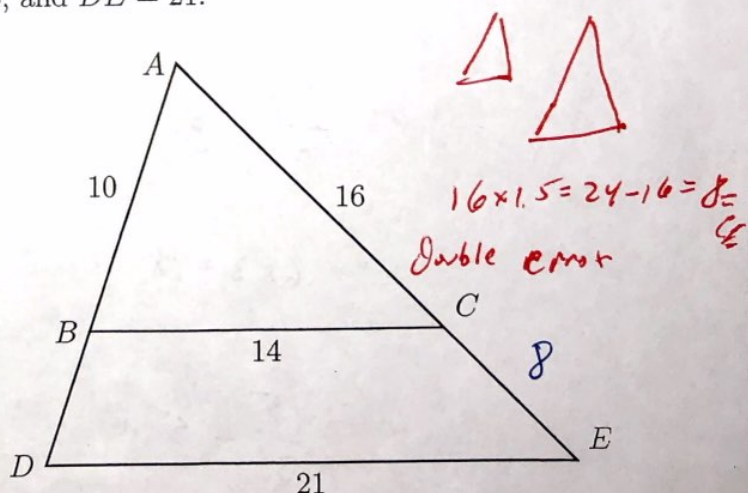 and DE = 21.
A
10
16
16×1.5=24-16=8=
Double error
C
B
14
8
E
D
21